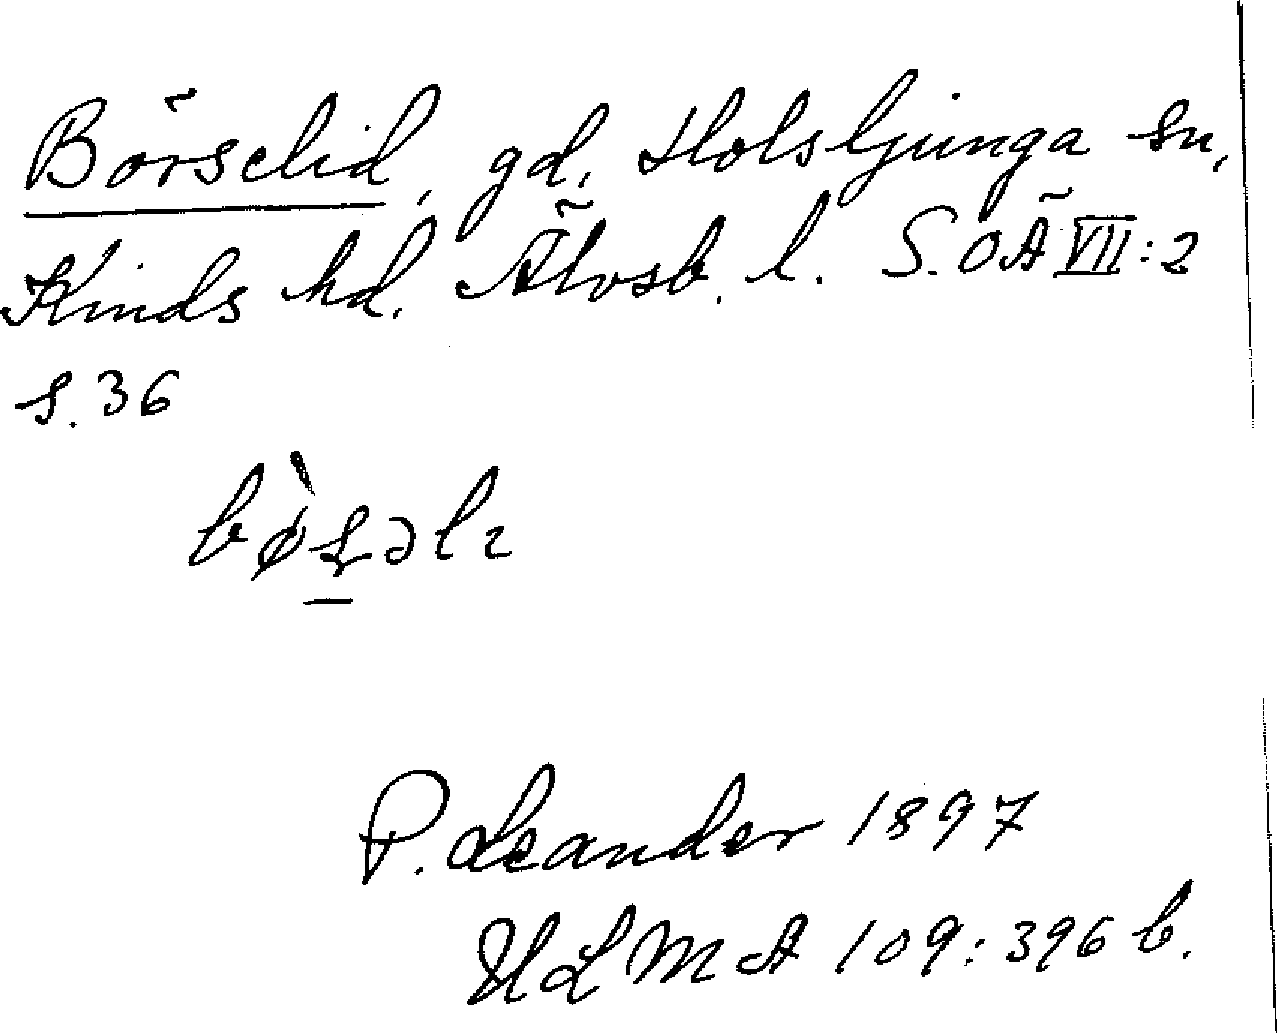 Börselid, gd, Holsljunga sn,
Kinds hd. Älvsb. l. S.OÄ VII:2
s. 36
bø̀s̠əlɪ
P. Leander 1897
ULMA 109:396 b.